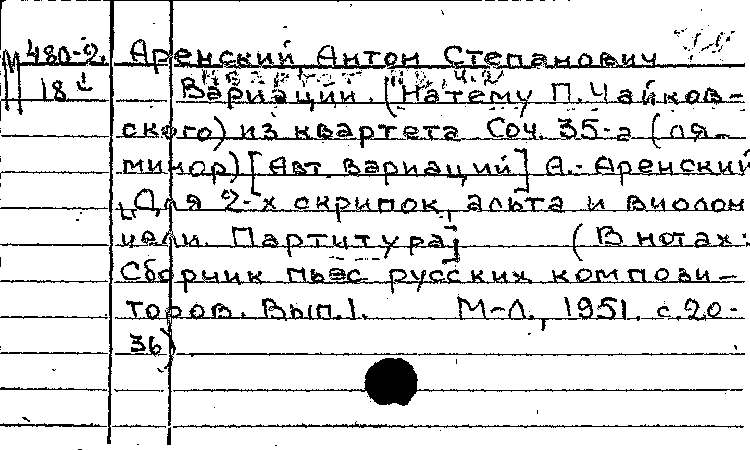 М 480-2. Аренский, Антон Степанович
18 Вариации. (На тему П. Чайков-
ского) из квартета Соч. 35-а (ля-
минор) [Авт. вариаций] А. Аренский
Для 2-х скрипок, альта и виолон
чели. Партитура] (В нотах:
Сборник пьес русских компози-
торов. Вып. 1. М-Л., 1951. с. 20-
36)